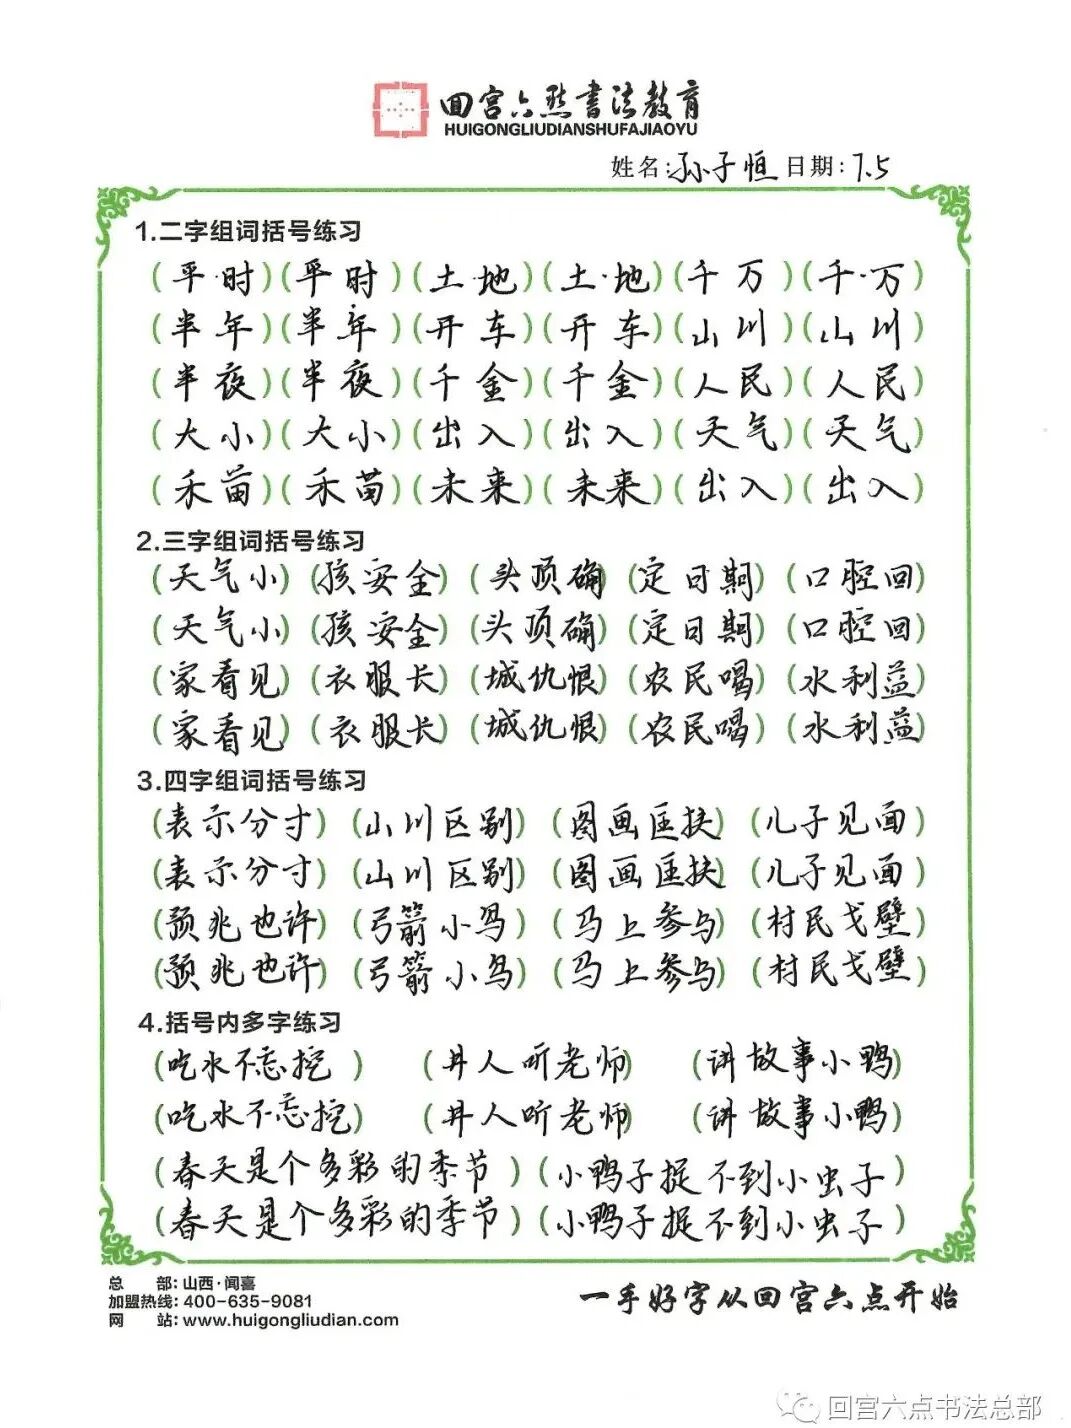 回宫六点书法教育
HUIGONGLIUDIANSHUFAJIAOYU
姓名:孙子恒日期:7.5
1.二字组词括号练习
(平·时)(平时)(土·地)(土·地)(千万)(千·万)
(半年)(半年)(开车)(开车)(山川)(山川)
(半夜)(半夜)(千金)(千金)(人民)(人民)
(大小)(大小)(出入)(出入)(天气)(天气)
(禾苗)(禾苗)(未来)(未来)(出入)(出入)
2.三字组词括号练习
(天气小)(孩安全)(头顶确)(定日期)(口腔回)
(天气小)(孩安全)(头顶确)(定日期)(口腔回)
(家看见)(衣服长)(城仇恨)(农民喝)(水利益)
(家看见)(衣服长)(城仇恨)(农民喝)(水利益)
3.四字组词括号练习
(表示分寸)(山川区别)(图画匡扶)(儿子见面)
(表示分寸)(山川区别)(图画匡扶)(儿子见面)
(预兆也许)(弓箭小鸟)(马上参与)(村民戈壁)
(预兆也许)(弓箭小鸟)(马上参与)(村民戈壁)
4.括号内多字练习
(吃水不忘挖)(井人听老师)(讲故事小鸭)
(吃水不忘挖)(井人听老师)(讲故事小鸭)
(春天是个多彩的季节)(小鸭子捉不到小虫子)
(春天是个多彩的季节)(小鸭子捉不到小虫子)
总部:山西·闻喜
加盟热线:400-635-9081
网站:www.huigongliudian.com
一手好字从回宫六点开始
回宫六点书法总部